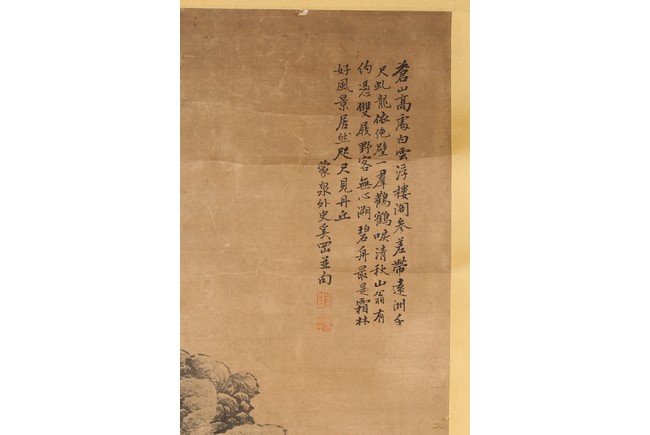 蒼山高處白雲浮樓閣參差帶遠洲千
尺虬龍依絶壁一羣鸛鶴唳清秋山翁有
約憑雙屐野客無心溯碧舟最是霜林
好風景居然咫尺見丹丘
蒙泉外史奚岡並句